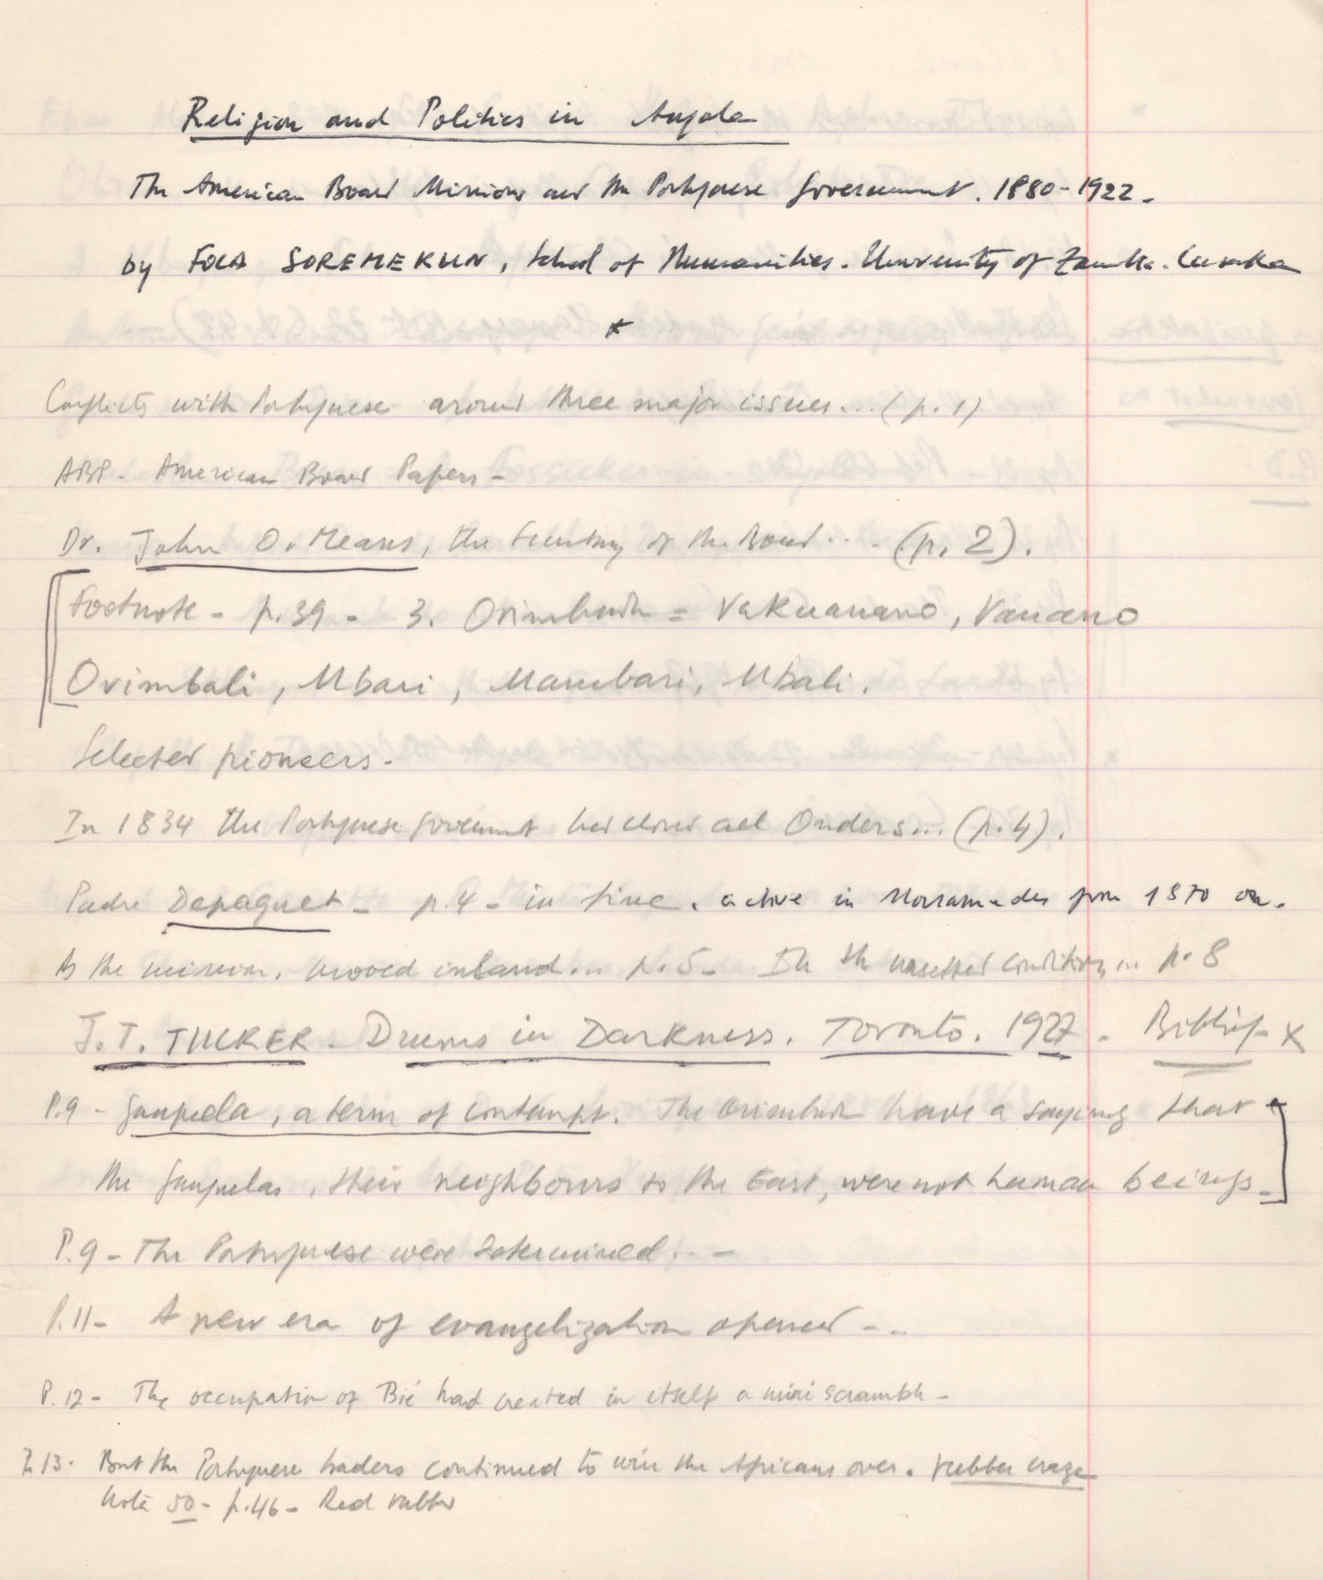 Religion and Politics in Angola
The American Board Missions and the Portuguese Government. 1880-1922.
by FOLA SOREMEKUN, School of Humanities. University of Zambia. Lusaka
*
Conflicts with Portuguese around three major issues... (p. 1)
ABP. American Board Papers -
Dr. John O. Means, the Secretary of the Board... (p. 2).
Footnote - p. 39 - 3. Ovimbundu = Vakuanano, Vanano
Ovimbali, Mbari, Mambari, Mbali.
Selected pioneers.
In 1834 the Portuguese Government had closed all Orders... (p. 4).
Padre Depaguet - p. 4 - in fine. active in Mossamedes from 1870 on.
As the mission, moved inland... p. 5 - In the unsettled conditions... p. 8
J.T. TUCKER. Drums in Darkness. Toronto. 1927. Bibliog x
P.9 - Ganguela, a term of contempt. The Ovimbundu have a saying that
the Ganguelas, their neighbours to the East, were not human beings.
P.9 - The Portuguese were determined... -
P.11 - A new era of evangelization opened - ..
P.12 - The occupation of Bié had created in itself a mini scramble -
P.13. But the Portuguese traders continued to win the Africans over. rubber craze
Note 50 - p. 46 - Red rubber